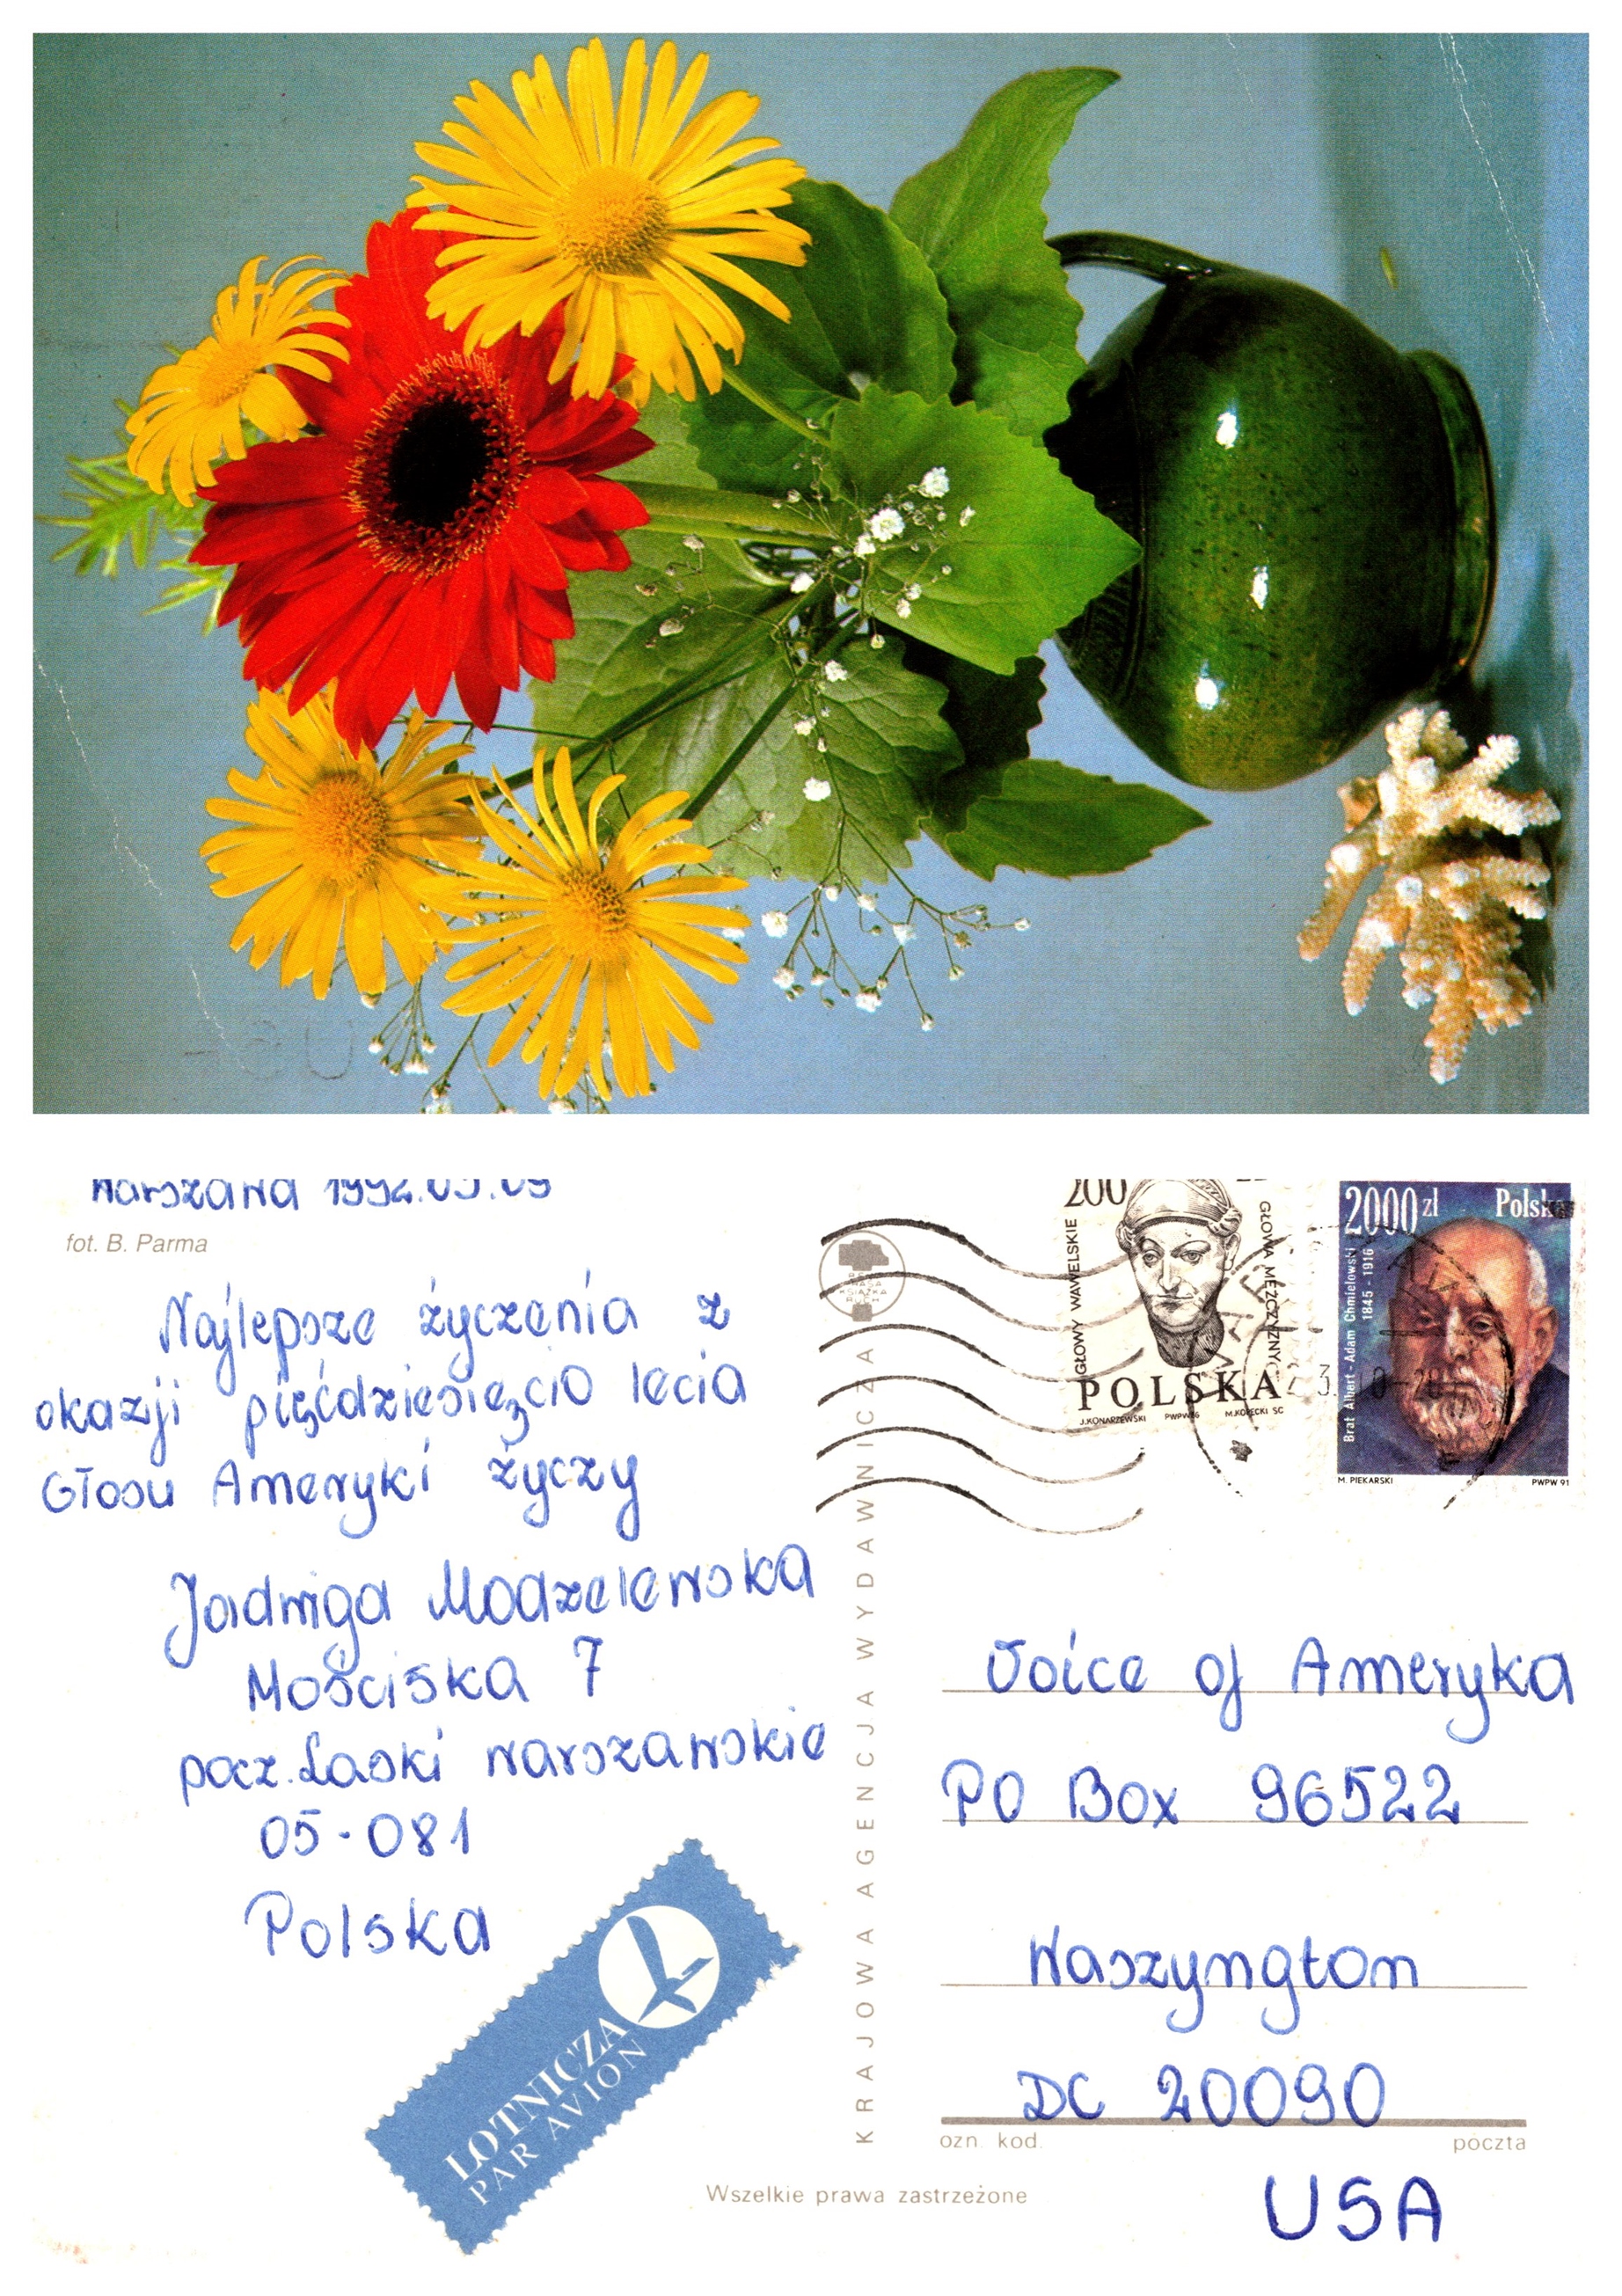 Warszawa 1992.03.09
fot. B. Parma
Najlepsze życzenia z
okazji pięćdziesięcio lecia
Głosu Ameryki życzy
Jadwiga Modzelewska
Mościska 7
pocz. Laski warszawskie
05-081
Polska
LOTNICZA
PAR AVION
KRAJOWA AGENCJA WYDAWNICZA
PRASA
KSIĄŻKA
RUCH
200
GŁOWY WAWELSKIE
GŁOWA MĘŻCZYZNY
POLSKA
J.KONARZEWSKI PWPW M.KOPECKI SC
2000 zł Polska
Brat Albert - Adam Chmielowski
1845 - 1916
M. PIEKARSKI PWPW 91
Voice of Ameryka
PO Box 96522
Waszyngton
DC 20090
ozn. kod. poczta
USA
Wszelkie prawa zastrzeżone